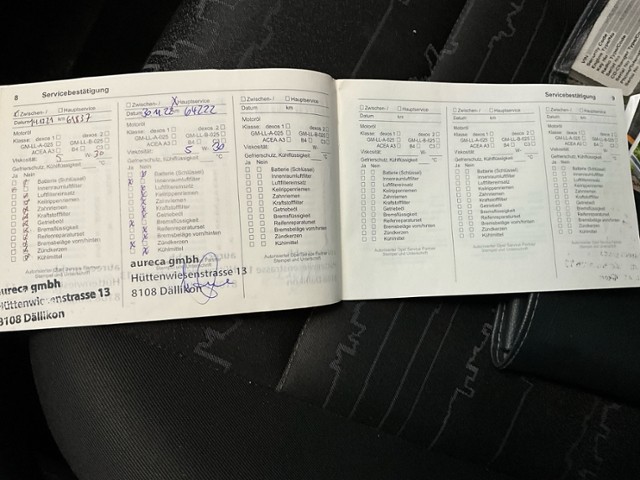 8 Servicebestätigung
Zwischen- / Hauptservice
Datum km 61837
Motoröl
Klasse: dexos 1 dexos 2
GM-LL-A-025 GM-LL-B-025
ACEA A3 B4 C3
Viskosität: 5 W- 30
Gefrierschutz, Kühlflüssigkeit: °C
Ja Nein
Batterie (Schlüssel)
Innenraumfilter
Luftfiltereinsatz
Keilrippenriemen
Zahnriemen
Kraftstofffilter
Getriebeöl
Bremsflüssigkeit
Reifenreparaturset
Bremsbeläge vorn/hinten
Zündkerzen
Kühlmittel
Autorisierter Opel Service Partner
Stempel und Unterschrift
aureca gmbh
Hüttenwiesenstrasse 13
8108 Dällikon
Zwischen- / X Hauptservice
Datum km 64222
Motoröl
Klasse: dexos 1 dexos 2
GM-LL-A-025 GM-LL-B-025
ACEA A3 B4 C3
Viskosität: 5 W- 30
Gefrierschutz, Kühlflüssigkeit: °C
Ja Nein
Batterie (Schlüssel)
Innenraumfilter
Luftfiltereinsatz
Keilrippenriemen
Zahnriemen
Kraftstofffilter
Getriebeöl
Bremsflüssigkeit
Reifenreparaturset
Bremsbeläge vorn/hinten
Zündkerzen
Kühlmittel
aureca gmbh
Hüttenwiesenstrasse 13
8108 Dällikon
Zwischen- / Hauptservice
Datum km
Motoröl
Klasse: dexos 1 dexos 2
GM-LL-A-025 GM-LL-B-025
ACEA A3 B4 C3
Viskosität: W-
Gefrierschutz, Kühlflüssigkeit: °C
Ja Nein
Batterie (Schlüssel)
Innenraumfilter
Luftfiltereinsatz
Keilrippenriemen
Zahnriemen
Kraftstofffilter
Getriebeöl
Bremsflüssigkeit
Reifenreparaturset
Bremsbeläge vorn/hinten
Zündkerzen
Kühlmittel
Autorisierter Opel Service Partner
Stempel und Unterschrift
Servicebestätigung 9
Zwischen- / Hauptservice
Datum km
Motoröl
Klasse: dexos 1 dexos 2
GM-LL-A-025 GM-LL-B-025
ACEA A3 B4 C3
Viskosität: W-
Gefrierschutz, Kühlflüssigkeit: °C
Ja Nein
Batterie (Schlüssel)
Innenraumfilter
Luftfiltereinsatz
Keilrippenriemen
Zahnriemen
Kraftstofffilter
Getriebeöl
Bremsflüssigkeit
Reifenreparaturset
Bremsbeläge vorn/hinten
Zündkerzen
Kühlmittel
Autorisierter Opel Service Partner
Stempel und Unterschrift
Zwischen- / Hauptservice
Datum km
Motoröl
Klasse: dexos 1 dexos 2
GM-LL-A-025 GM-LL-B-025
ACEA A3 B4 C3
Viskosität: W-
Gefrierschutz, Kühlflüssigkeit: °C
Ja Nein
Batterie (Schlüssel)
Innenraumfilter
Luftfiltereinsatz
Keilrippenriemen
Zahnriemen
Kraftstofffilter
Getriebeöl
Bremsflüssigkeit
Reifenreparaturset
Bremsbeläge vorn/hinten
Zündkerzen
Kühlmittel
Autorisierter Opel Service Partner
Stempel und Unterschrift
Zwischen- / Hauptservice
Datum km
Motoröl
Klasse: dexos 1 dexos 2
GM-LL-A-025 GM-LL-B-025
ACEA A3 B4 C3
Viskosität: W-
Gefrierschutz, Kühlflüssigkeit: °C
Ja Nein
Batterie (Schlüssel)
Innenraumfilter
Luftfiltereinsatz
Keilrippenriemen
Zahnriemen
Kraftstofffilter
Getriebeöl
Bremsflüssigkeit
Reifenreparaturset
Bremsbeläge vorn/hinten
Zündkerzen
Kühlmittel
Autorisierter Opel Service Partner
Stempel und Unterschrift